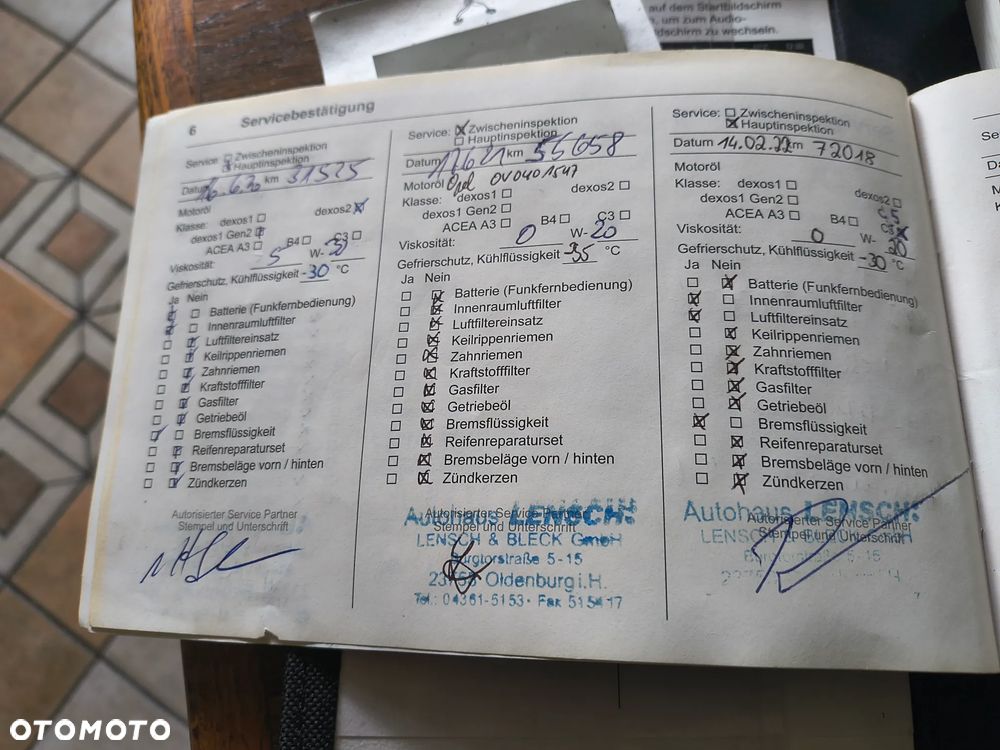 auf dem Startbildschirm
, um zum Audio-
dschirm zu wechseln.
6 Servicebestätigung
Service: Zwischeninspektion
Hauptinspektion
Datum 16.6.20 km 31525
Motoröl
Klasse: dexos1 dexos2
dexos1 Gen2
ACEA A3 B4 C3
Viskosität: 5 W- 30
Gefrierschutz, Kühlflüssigkeit -30 °C
Ja Nein
Batterie (Funkfernbedienung)
Innenraumluftfilter
Luftfiltereinsatz
Keilrippenriemen
Zahnriemen
Kraftstofffilter
Gasfilter
Getriebeöl
Bremsflüssigkeit
Reifenreparaturset
Bremsbeläge vorn / hinten
Zündkerzen
Autorisierter Service Partner
Stempel und Unterschrift
Service: Zwischeninspektion
Hauptinspektion
Datum km 55658
Motoröl Opel OV0401547
Klasse: dexos1 dexos2
dexos1 Gen2
ACEA A3 B4 C3
Viskosität: 0 W- 20
Gefrierschutz, Kühlflüssigkeit -35 °C
Ja Nein
Batterie (Funkfernbedienung)
Innenraumluftfilter
Luftfiltereinsatz
Keilrippenriemen
Zahnriemen
Kraftstofffilter
Gasfilter
Getriebeöl
Bremsflüssigkeit
Reifenreparaturset
Bremsbeläge vorn / hinten
Zündkerzen
Autorisierter Service Partner
Stempel und Unterschrift
Autohaus LENSCH
LENSCH & BLECK GmbH
Burgtorstraße 5 - 15
23758 Oldenburg i.H.
Tel.: 04361-5153 · Fax 515417
Service: Zwischeninspektion
Hauptinspektion
Datum 14.02.22 km 72018
Motoröl
Klasse: dexos1 dexos2
dexos1 Gen2 C5
ACEA A3 B4 C3
Viskosität: 0 W- 20
Gefrierschutz, Kühlflüssigkeit -30 °C
Ja Nein
Batterie (Funkfernbedienung)
Innenraumluftfilter
Luftfiltereinsatz
Keilrippenriemen
Zahnriemen
Kraftstofffilter
Gasfilter
Getriebeöl
Bremsflüssigkeit
Reifenreparaturset
Bremsbeläge vorn / hinten
Zündkerzen
Autorisierter Service Partner
Stempel und Unterschrift
Autohaus LENSCH
Burgtorstraße 5 - 15
OTOMOTO